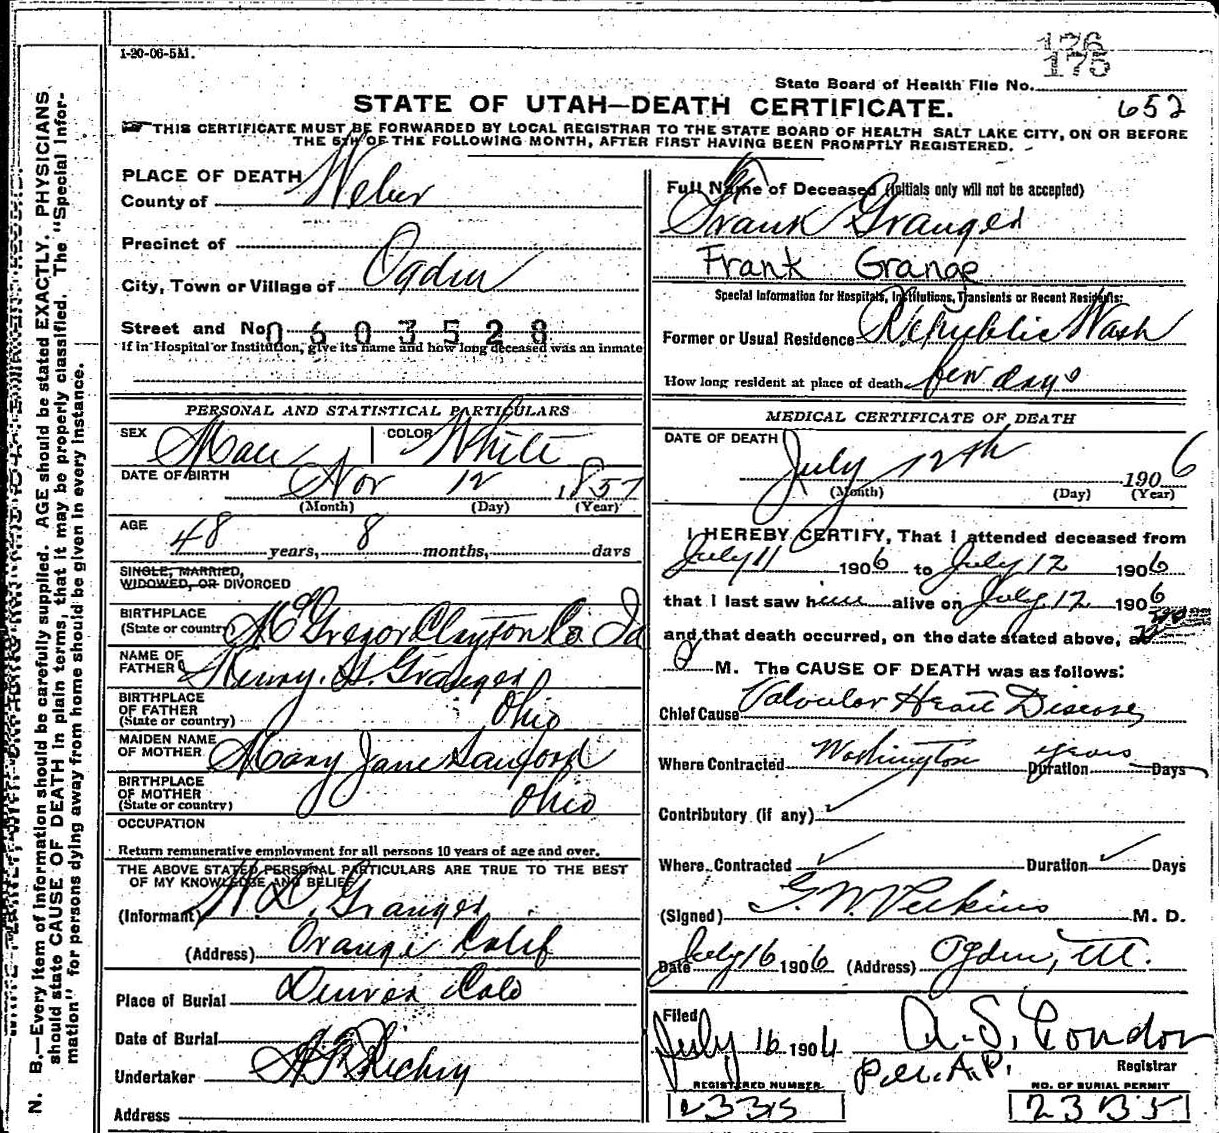 1-20-06-5M.
176
175
State Board of Health File No.
652
STATE OF UTAH—DEATH CERTIFICATE.
THIS CERTIFICATE MUST BE FORWARDED BY LOCAL REGISTRAR TO THE STATE BOARD OF HEALTH SALT LAKE CITY, ON OR BEFORE
THE 5TH OF THE FOLLOWING MONTH, AFTER FIRST HAVING BEEN PROMPTLY REGISTERED.
PLACE OF DEATH
County of Weber
Precinct of
City, Town or Village of Ogden
Street and No. 0603528
If in Hospital or Institution, give its name and how long deceased was an inmate
PERSONAL AND STATISTICAL PARTICULARS
SEX Male COLOR White
DATE OF BIRTH Nov 12 1857
(Month) (Day) (Year)
AGE 48 years, 8 months, days
SINGLE, MARRIED,
WIDOWED, OR DIVORCED
BIRTHPLACE
(State or country) McGregor Clayton Co Ia
NAME OF
FATHER Henry. H. Granger
BIRTHPLACE
OF FATHER
(State or country) Ohio
MAIDEN NAME
OF MOTHER Mary Jane Sanford
BIRTHPLACE
OF MOTHER
(State or country) Ohio
OCCUPATION
Return remunerative employment for all persons 10 years of age and over.
THE ABOVE STATED PERSONAL PARTICULARS ARE TRUE TO THE BEST
OF MY KNOWLEDGE AND BELIEF
(Informant) Granger
(Address) Orange Calif
Place of Burial Denver Colo
Date of Burial
Undertaker Richey
Address
Full Name of Deceased (Initials only will not be accepted)
Frank Granger
Frank Grange
Special Information for Hospitals, Institutions, Transients or Recent Residents:
Former or Usual Residence Republic Wash
How long resident at place of death few days
MEDICAL CERTIFICATE OF DEATH
DATE OF DEATH
July 12th 1906
(Month) (Day) (Year)
I HEREBY CERTIFY, That I attended deceased from
July 11 1906 to July 12 1906
that I last saw him alive on July 12 1906
and that death occurred, on the date stated above, at
M. The CAUSE OF DEATH was as follows:
Chief Cause Valvular Heart Disease
Where Contracted Washington Duration years Days
Contributory (if any)
Where Contracted Duration Days
(Signed) G. W. Perkins M. D.
Date July 16 1906 (Address) Ogden, Ut.
Filed
July 16 1906 A. S. Condon
Per. A.P. Registrar
REGISTERED NUMBER NO. OF BURIAL PERMIT
2335 2335
N. B.—Every item of information should be carefully supplied. AGE should be stated EXACTLY. PHYSICIANS
should state CAUSE OF DEATH in plain terms, that it may be properly classified. The "Special Infor-
mation" for persons dying away from home should be given in every instance.